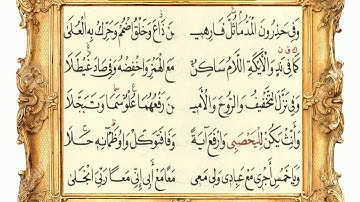 وَفِي حَذِرُونَ الْمَدُّ مَا ثُلَّ فَارِهِيـ نَ ذَاعَ وَخَلْقُ اضْمُمْ وَحَرِّكْ بِهِ الْعُلَا
كَمَا فِي نَدٍ وَالْأَيْكَةِ اللَّامُ سَاكِنٌ مَعَ الْهَمْزِ وَاخْفِضْهُ وَفِي صَادَ غَيْطَلَا
وَفِي نَزَّلَ التَّخْفِيفُ وَالرُّوحُ وَالْأَمِيـ نُ رَفْعُهُمَا عُلْوٌ سَمَا وَتَبَجَّلَا
وَأَنِّثْ يَكُنْ لِلْيَحْصَبِي وَارْفَعَ آيَةً وَفَا فَتَوَكَّلْ وَاوُ ظَمْآنِهِ حَلَا
وَيَا خَمْسِ أَجْرِي مَعْ عِبَادِي وَلِي مَعِي مَعًا مَعْ أَبِي إِنِّي مَعًا رَبِّيَ انْجَلَى